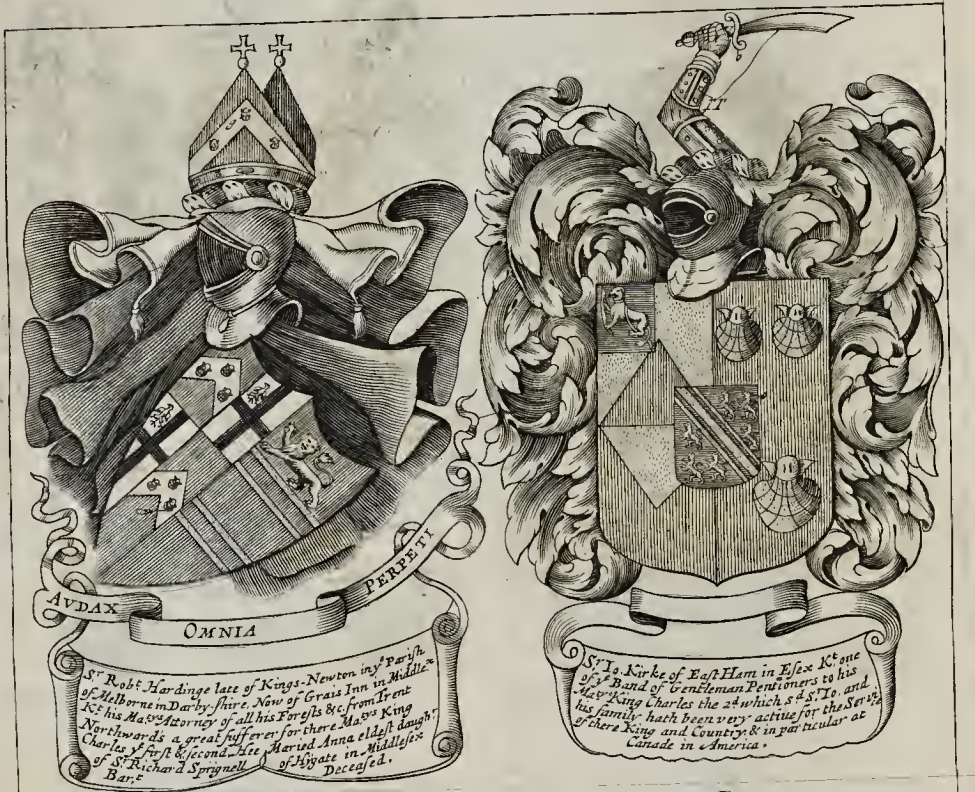 AVDAX
OMNIA
PERPETI
Sr. Robt. Hardinge late of Kings-Newton in ye Parish
of Melborne in Darby-shire, Now of Grais Inn in Middlex
Kt. his Matyes Attorney of all his Forests &c. from Trent
Northwards a great sufferer for there Matyes King
Charles ye first & second. Hee Maried Anna eldest daughr.
of Sr. Richard Sprignell of Higate in Middlesex
Bart. Deceased.
Sr. Io. Kirke of East Ham in Essex Kt. one
of ye Band of Gentleman Pentioners to his
Matye King Charles the 2d. which sd. Sr. Io. and
his family hath been very active for the Service
of there King and Country, & in particular at
Canade in America.